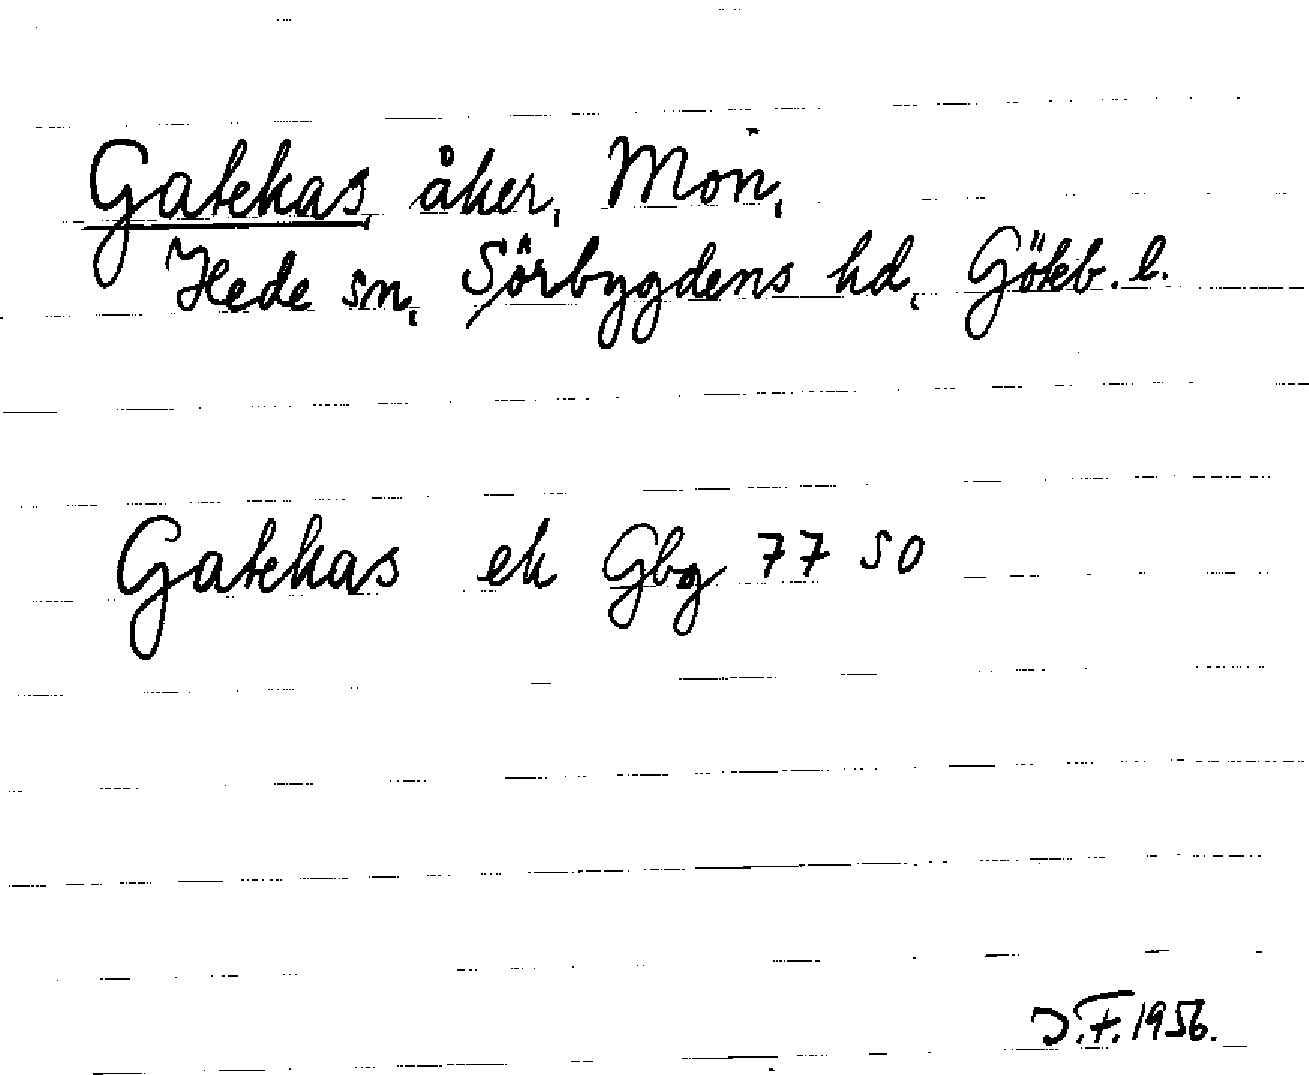 Gatekas åker, Mon,
Hede sn, Sörbygdens hd, Göteb. l.
Gatekas ek Gbg 77 50
J.F. 1956.